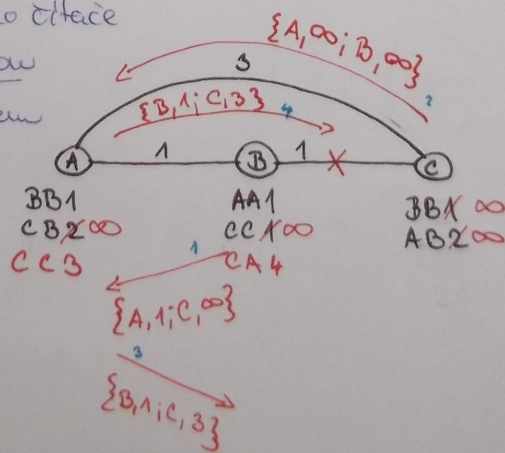 čítače
{A,∞;B,∞}
2
3
{B,1;C,3}
4
A 1 B 1 C
BB1
CB2∞
CC3
AA1
CC1∞
CA4
BB1 ∞
AB2∞
1
{A,1;C,∞}
3
{B,1;C,3}